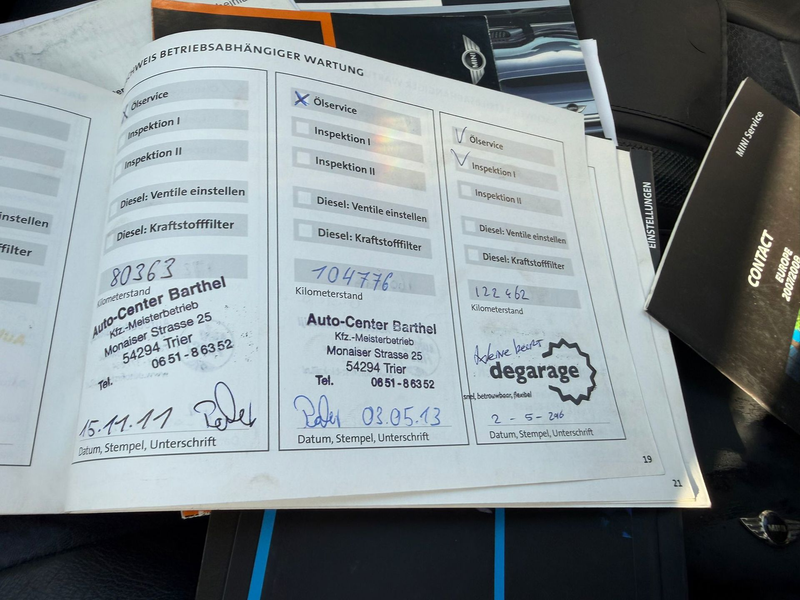 HWEIS BETRIEBSABHÄNGIGER WARTUNG
Ölservice
Inspektion I
Inspektion II
Diesel: Ventile einstellen
Diesel: Kraftstofffilter
80363
Kilometerstand
Auto-Center Barthel
Kfz.-Meisterbetrieb
Monaiser Strasse 25
54294 Trier
Tel. 0651-86352
15.11.11
Datum, Stempel, Unterschrift
Ölservice
Inspektion I
Inspektion II
Diesel: Ventile einstellen
Diesel: Kraftstofffilter
104776
Kilometerstand
Auto-Center Barthel
Kfz.-Meisterbetrieb
Monaiser Strasse 25
54294 Trier
Tel. 0651-86352
03.05.13
Datum, Stempel, Unterschrift
Ölservice
Inspektion I
Inspektion II
Diesel: Ventile einstellen
Diesel: Kraftstofffilter
122462
Kilometerstand
degarage
snel, betrouwbaar, flexibel
Datum, Stempel, Unterschrift
19
21
instellen
filter
MINI
EINSTELLUNGEN
MINI Service
CONTACT
EUROPE
2007/2008
MINI